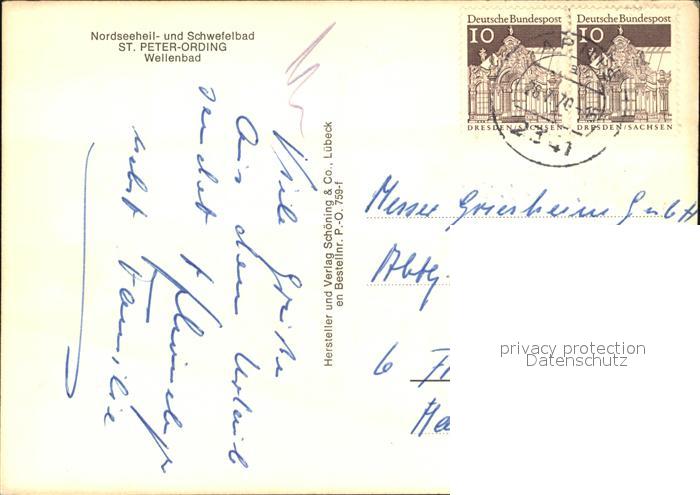 Nordseeheil- und Schwefelbad
ST. PETER-ORDING
Wellenbad
Deutsche Bundespost
10
DRESDEN/SACHSEN
Deutsche Bundespost
10
DRESDEN/SACHSEN
Viele Grüße
Aus dem Urlaub
sendet
nebst Familie
Hersteller und Verlag Schöning & Co., Lübeck
en Bestellnr. P.-O. 759-f
Messer Griesheim GmbH
Abtg.
6
privacy protection
Datenschutz